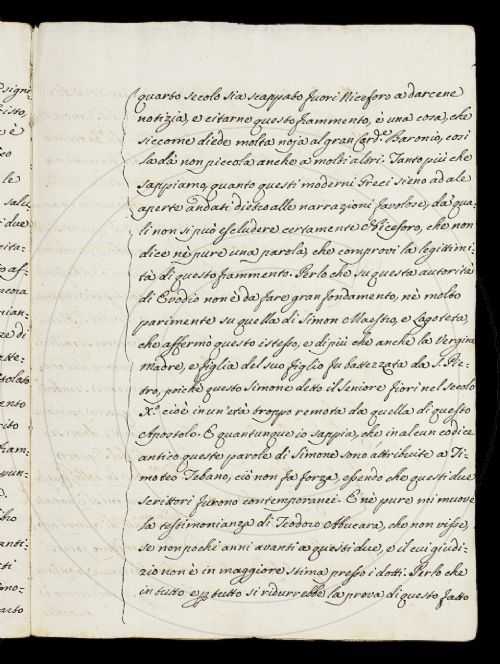 quarto secolo sia scappato fuori Niceforo a darcene
notizia, e citarne questo frammento, è una cosa, che
siccome diede molta noja al gran Card.e Baronio, così
la dà non piccola anche a molti altri. Tanto più che
sappiamo, quanto questi moderni Greci sieno ad ale
aperte andati dietro alle narrazioni favolose, da' qua-
li non si può escludere certamente Niceforo, che non
dice nè pure una parola, che comprovi la legittimi-
tà di questo frammento. Perlo che su questa autorità
di Evodio non è da fare gran fondamento, nè molto
parimente su quella di Simon Maestro, e Logoteta,
che affermò questo istesso, e di più che anche la Vergine
Madre, e figlia del suo figlio fu battezzata da S. Pie-
tro, poichè questo Simone detto il Seniore fiorì nel Secolo
X.o cioè in un'età troppo remota da quella di questo
Apostolo. E quantunque io sappia, che in alcun codice
antico queste parole di Simone sono attribuite a Ti-
moteo Tebano, ciò non fa forza, essendo che questi due
scrittori furono contemporanei. E nè pure mi muove
la testimonianza di Teodoro Abucara, che non visse,
se non pochi anni avanti a questi due, e il cui giudi-
zio non è in maggiore stima presso i dotti. Perlo che
in tutto e p tutto si ridurrebbe la prova di questo fatto